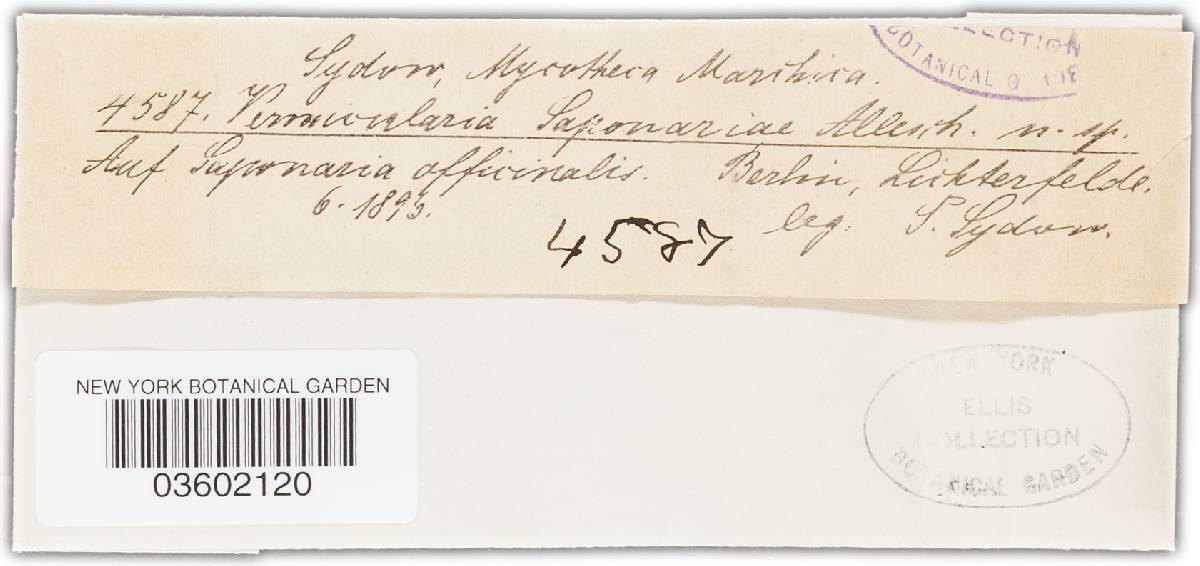 Sydow, Mycotheca Marchica.
4587. Vermicularia Saponariae Allesch. n. sp.
Auf Saponaria officinalis. Berlin, Lichterfelde.
6. 1895. leg. P. Sydow.
4587
LLECTION
BOTANICAL G
NEW YORK BOTANICAL GARDEN
03602120
NEW YORK
ELLIS
COLLECTION
BOTANICAL GARDEN